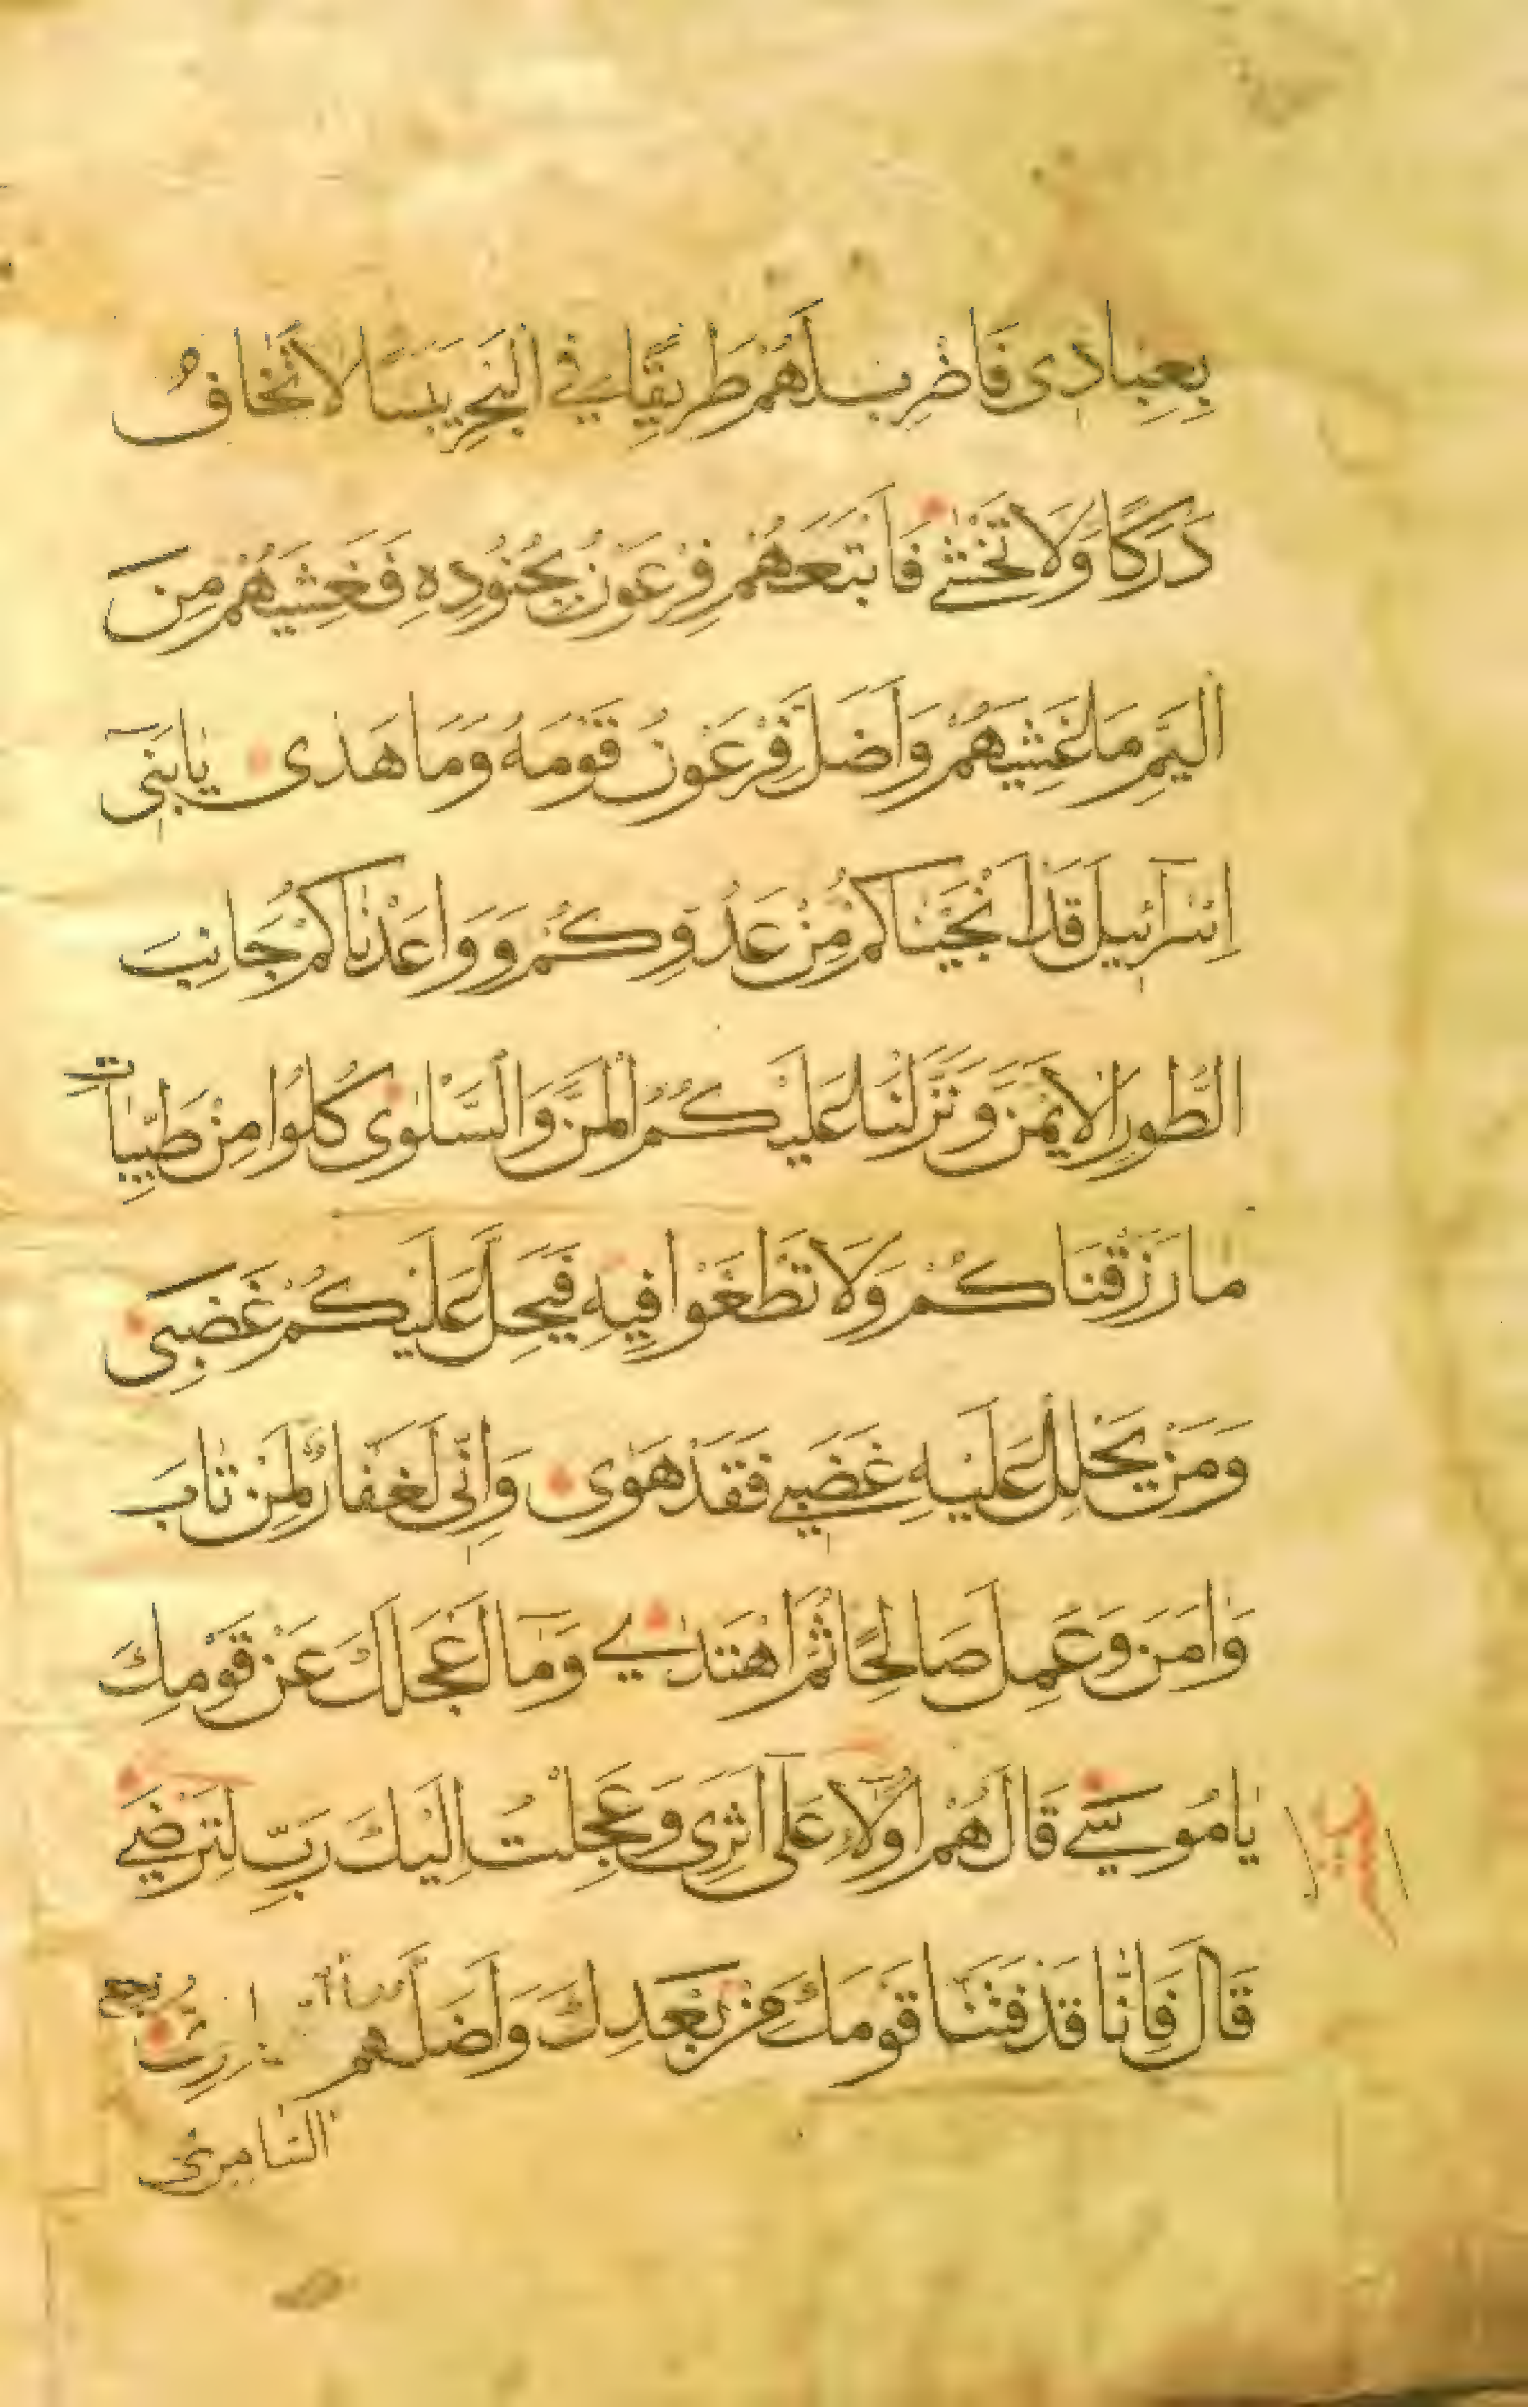 بِعِبَادِى فَاضْرِبْ لَهُمْ طَرِيقًا فِي الْبَحْرِ يَبَسًا لَا تَخَافُ
دَرَكًا وَلَا تَخْشٰى فَاَتْبَعَهُمْ فِرْعَوْنُ بِجُنُودِهِ فَغَشِيَهُمْ مِنَ
الْيَمِّ مَا غَشِيَهُمْ وَاَضَلَّ فِرْعَوْنُ قَوْمَهُ وَمَا هَدٰى يَا بَنِٓى
اِسْرَآئِيلَ قَدْ اَنْجَيْنَاكُمْ مِنْ عَدُوِّكُمْ وَوَاعَدْنَاكُمْ جَانِبَ
الطُّورِ الْاَيْمَنَ وَنَزَّلْنَا عَلَيْكُمُ الْمَنَّ وَالسَّلْوٰى كُلُوا مِنْ طَيِّبَاتِ
مَا رَزَقْنَاكُمْ وَلَا تَطْغَوْا فِيهِ فَيَحِلَّ عَلَيْكُمْ غَضَبِى
وَمَنْ يَحْلِلْ عَلَيْهِ غَضَبِي فَقَدْ هَوٰى وَاِنِّى لَغَفَّارٌ لِمَنْ تَابَ
وَاٰمَنَ وَعَمِلَ صَالِحًا ثُمَّ اهْتَدٰي وَمَٓا اَعْجَلَكَ عَنْ قَوْمِكَ
يَا مُوسٰي قَالَ هُمْ اُولَٓاءِ عَلٰٓى اَثَرِى وَعَجِلْتُ اِلَيْكَ رَبِّ لِتَرْضٰي
قَالَ فَاِنَّا قَدْ فَتَنَّا قَوْمَكَ مِنْ بَعْدِكَ وَاَضَلَّهُمُ
السَّامِرِىُّ